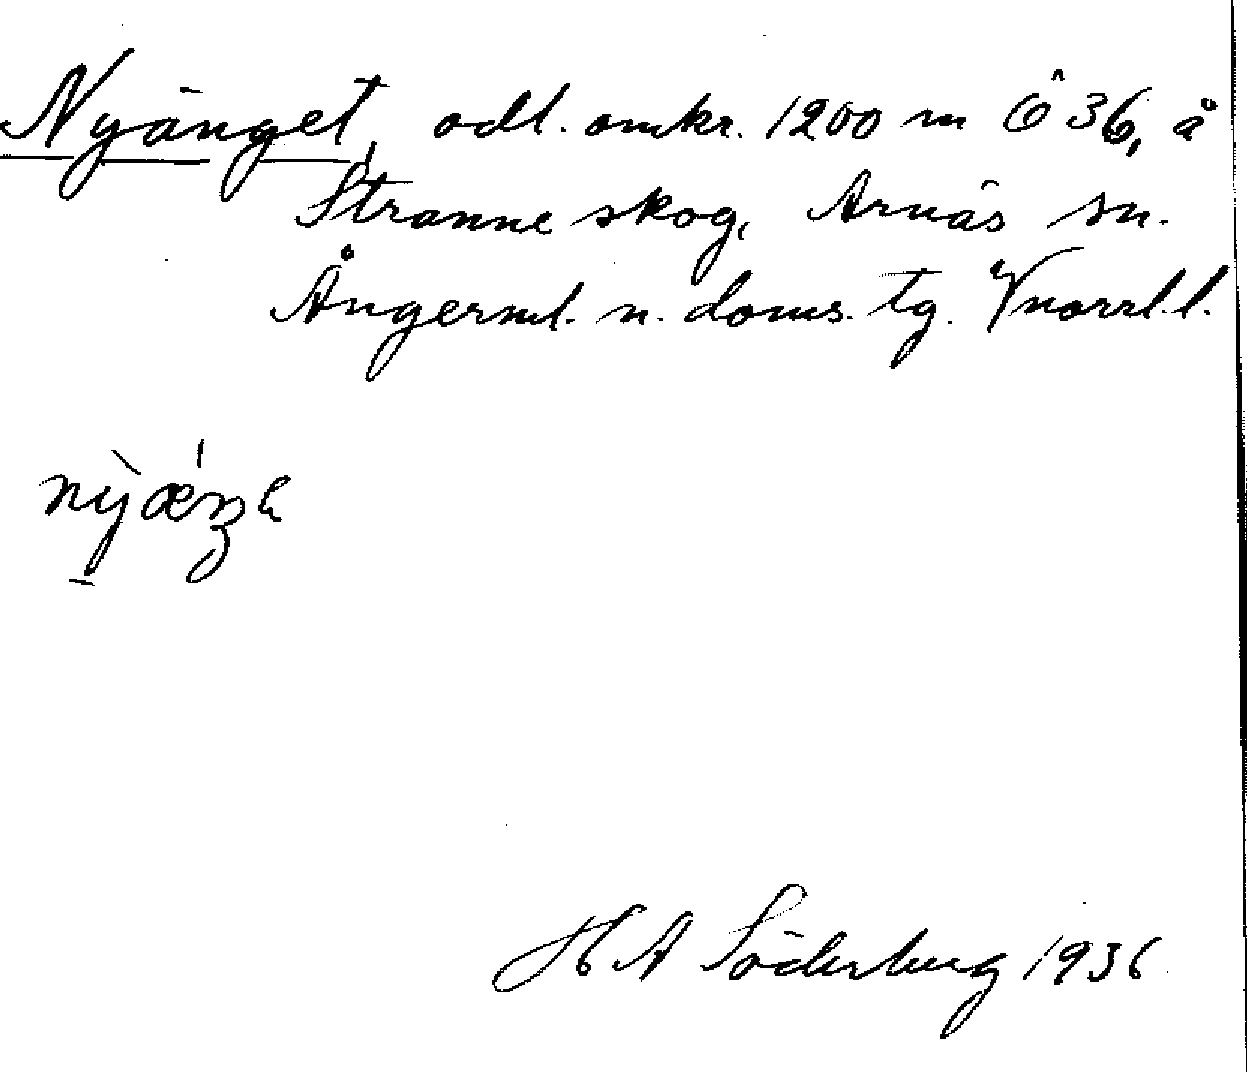 Nyänget, odl. omkr. 1200 m Ö 36, å
Stranne skog, Arnäs sn.
Ångerml. n. doms. tg. Vnorrl. l.
H A Söderberg 1936